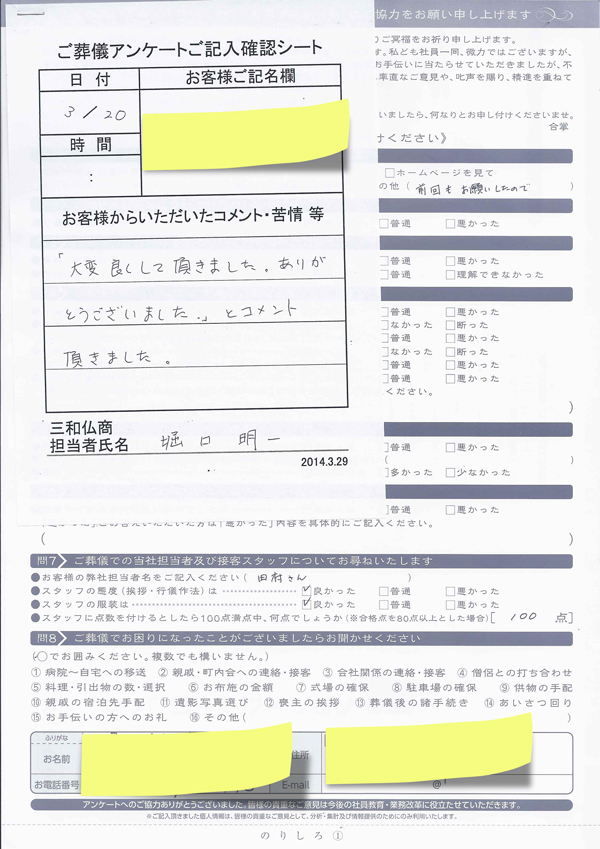 協力をお願い申し上げます
ご葬儀アンケートご記入確認シート
日付
お客様ご記名欄
3/20
時間
:
お客様からいただいたコメント・苦情 等
「大変良くして頂きました。ありが
とうございました。」とコメント
頂きました。
三和仏商
担当者氏名 堀口明一
2014.3.29
ご冥福をお祈り申し上げます。
す。私ども社員一同、微力ではございますが、
お手伝いに当たらせていただきましたが、不
率直なご意見や、叱声を賜り、精進を重ねて
いましたら、何なりとお申し付けくださいませ。
合掌
けください》
□ホームページを見て
の他（前回もお願いしたので
□普通 □悪かった
□普通 □悪かった
□普通 □理解できなかった
□普通 □悪かった
なかった □断った
□普通 □悪かった
なかった □断った
□普通 □悪かった
□普通 □悪かった
ください。
）
□普通 □悪かった
（ ）
□多かった □少なかった
□普通 □悪かった
方は「悪かった」内容を具体的にご記入ください。
（ ）
問7 ご葬儀での当社担当者及び接客スタッフについてお尋ねいたします
●お客様の弊社担当者名をご記入ください（ 田府さん ）
●スタッフの態度（挨拶・行儀作法）は ☑良かった □普通 □悪かった
●スタッフの服装は ☑良かった □普通 □悪かった
●スタッフに点数を付けるとしたら100点満点中、何点でしょうか（※合格点を80点以上とした場合）[ 100 点]
問8 ご葬儀でお困りになったことがございましたらお聞かせください
（○でお囲みください。複数でも構いません。）
①病院～自宅への移送 ②親戚・町内会への連絡・接客 ③会社関係の連絡・接客 ④僧侶との打ち合わせ
⑤料理・引出物の数・選択 ⑥お布施の金額 ⑦式場の確保 ⑧駐車場の確保 ⑨供物の手配
⑩親戚の宿泊先手配 ⑪遺影写真選び ⑫喪主の挨拶 ⑬葬儀後の諸手続き ⑭あいさつ回り
⑮お手伝いの方へのお礼 ⑯その他（ ）
ふりがな
お名前
住所
お電話番号
E-mail
@
アンケートへのご協力ありがとうございました。皆様の貴重なご意見は今後の社員教育・業務改革に役立たせていただきます。
※ご記入頂きました個人情報は、皆様の貴重なご意見として、分析・集計及び情報提供のためにのみ利用いたします。
のりしろ①